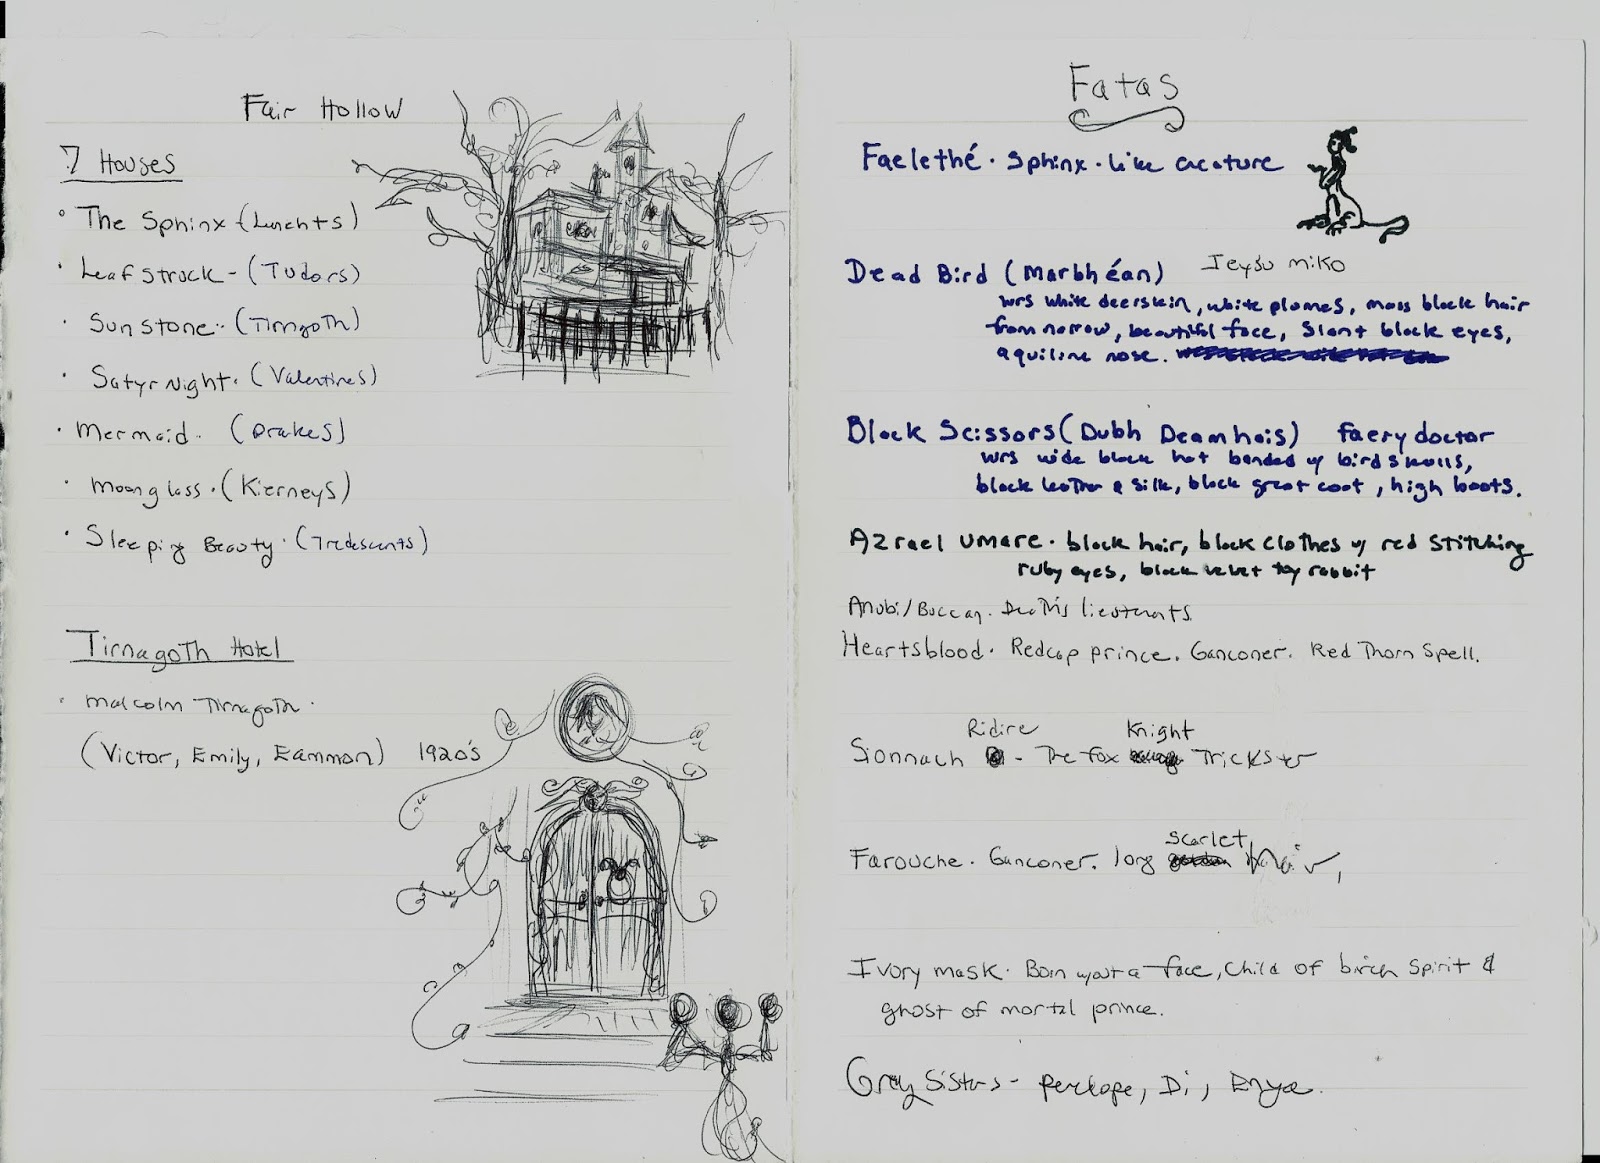 Fair Hollow
7 Houses
• The Sphinx (Lunchts)
• Leafstruck - (Tudors)
• Sunstone · (Tirnagoth)
• Satyr Night · (Valentines)
• Mermaid · (Drakes)
• Moonglass · (Kierneys)
• Sleeping Beauty · (Tredescants)
Tirnagoth Hotel
• Malcolm Tirnagoth ·
(Victor, Emily, Eammon) 1920's
Fatas
Faelethé · Sphinx · like creature
Dead Bird (Marbhéan) Jeysu miko
wrs white deerskin, white plumes, mass black hair
from narrow, beautiful face, slant black eyes,
aquiline nose.
Black Scissors (Dubh Deamhais) faery doctor
wrs wide black hat banded w/ bird skulls,
black leather & silk, black great coat, high boots.
Azrael Umare · black hair, black clothes w/ red stitching
ruby eyes, black velvet toy rabbit
Anubi/Buccan · Death's lieutenants
Heartsblood · Redcap prince. Ganconer. Red Thorn Spell.
Ridire Knight
Sionnach - The Fox Trickster
scarlet
Farouche · Ganconer. long hair,
Ivory mask · Born w/out a face, child of birch spirit &
ghost of mortal prince.
Grey Sisters - Perelope, Di, Enya.